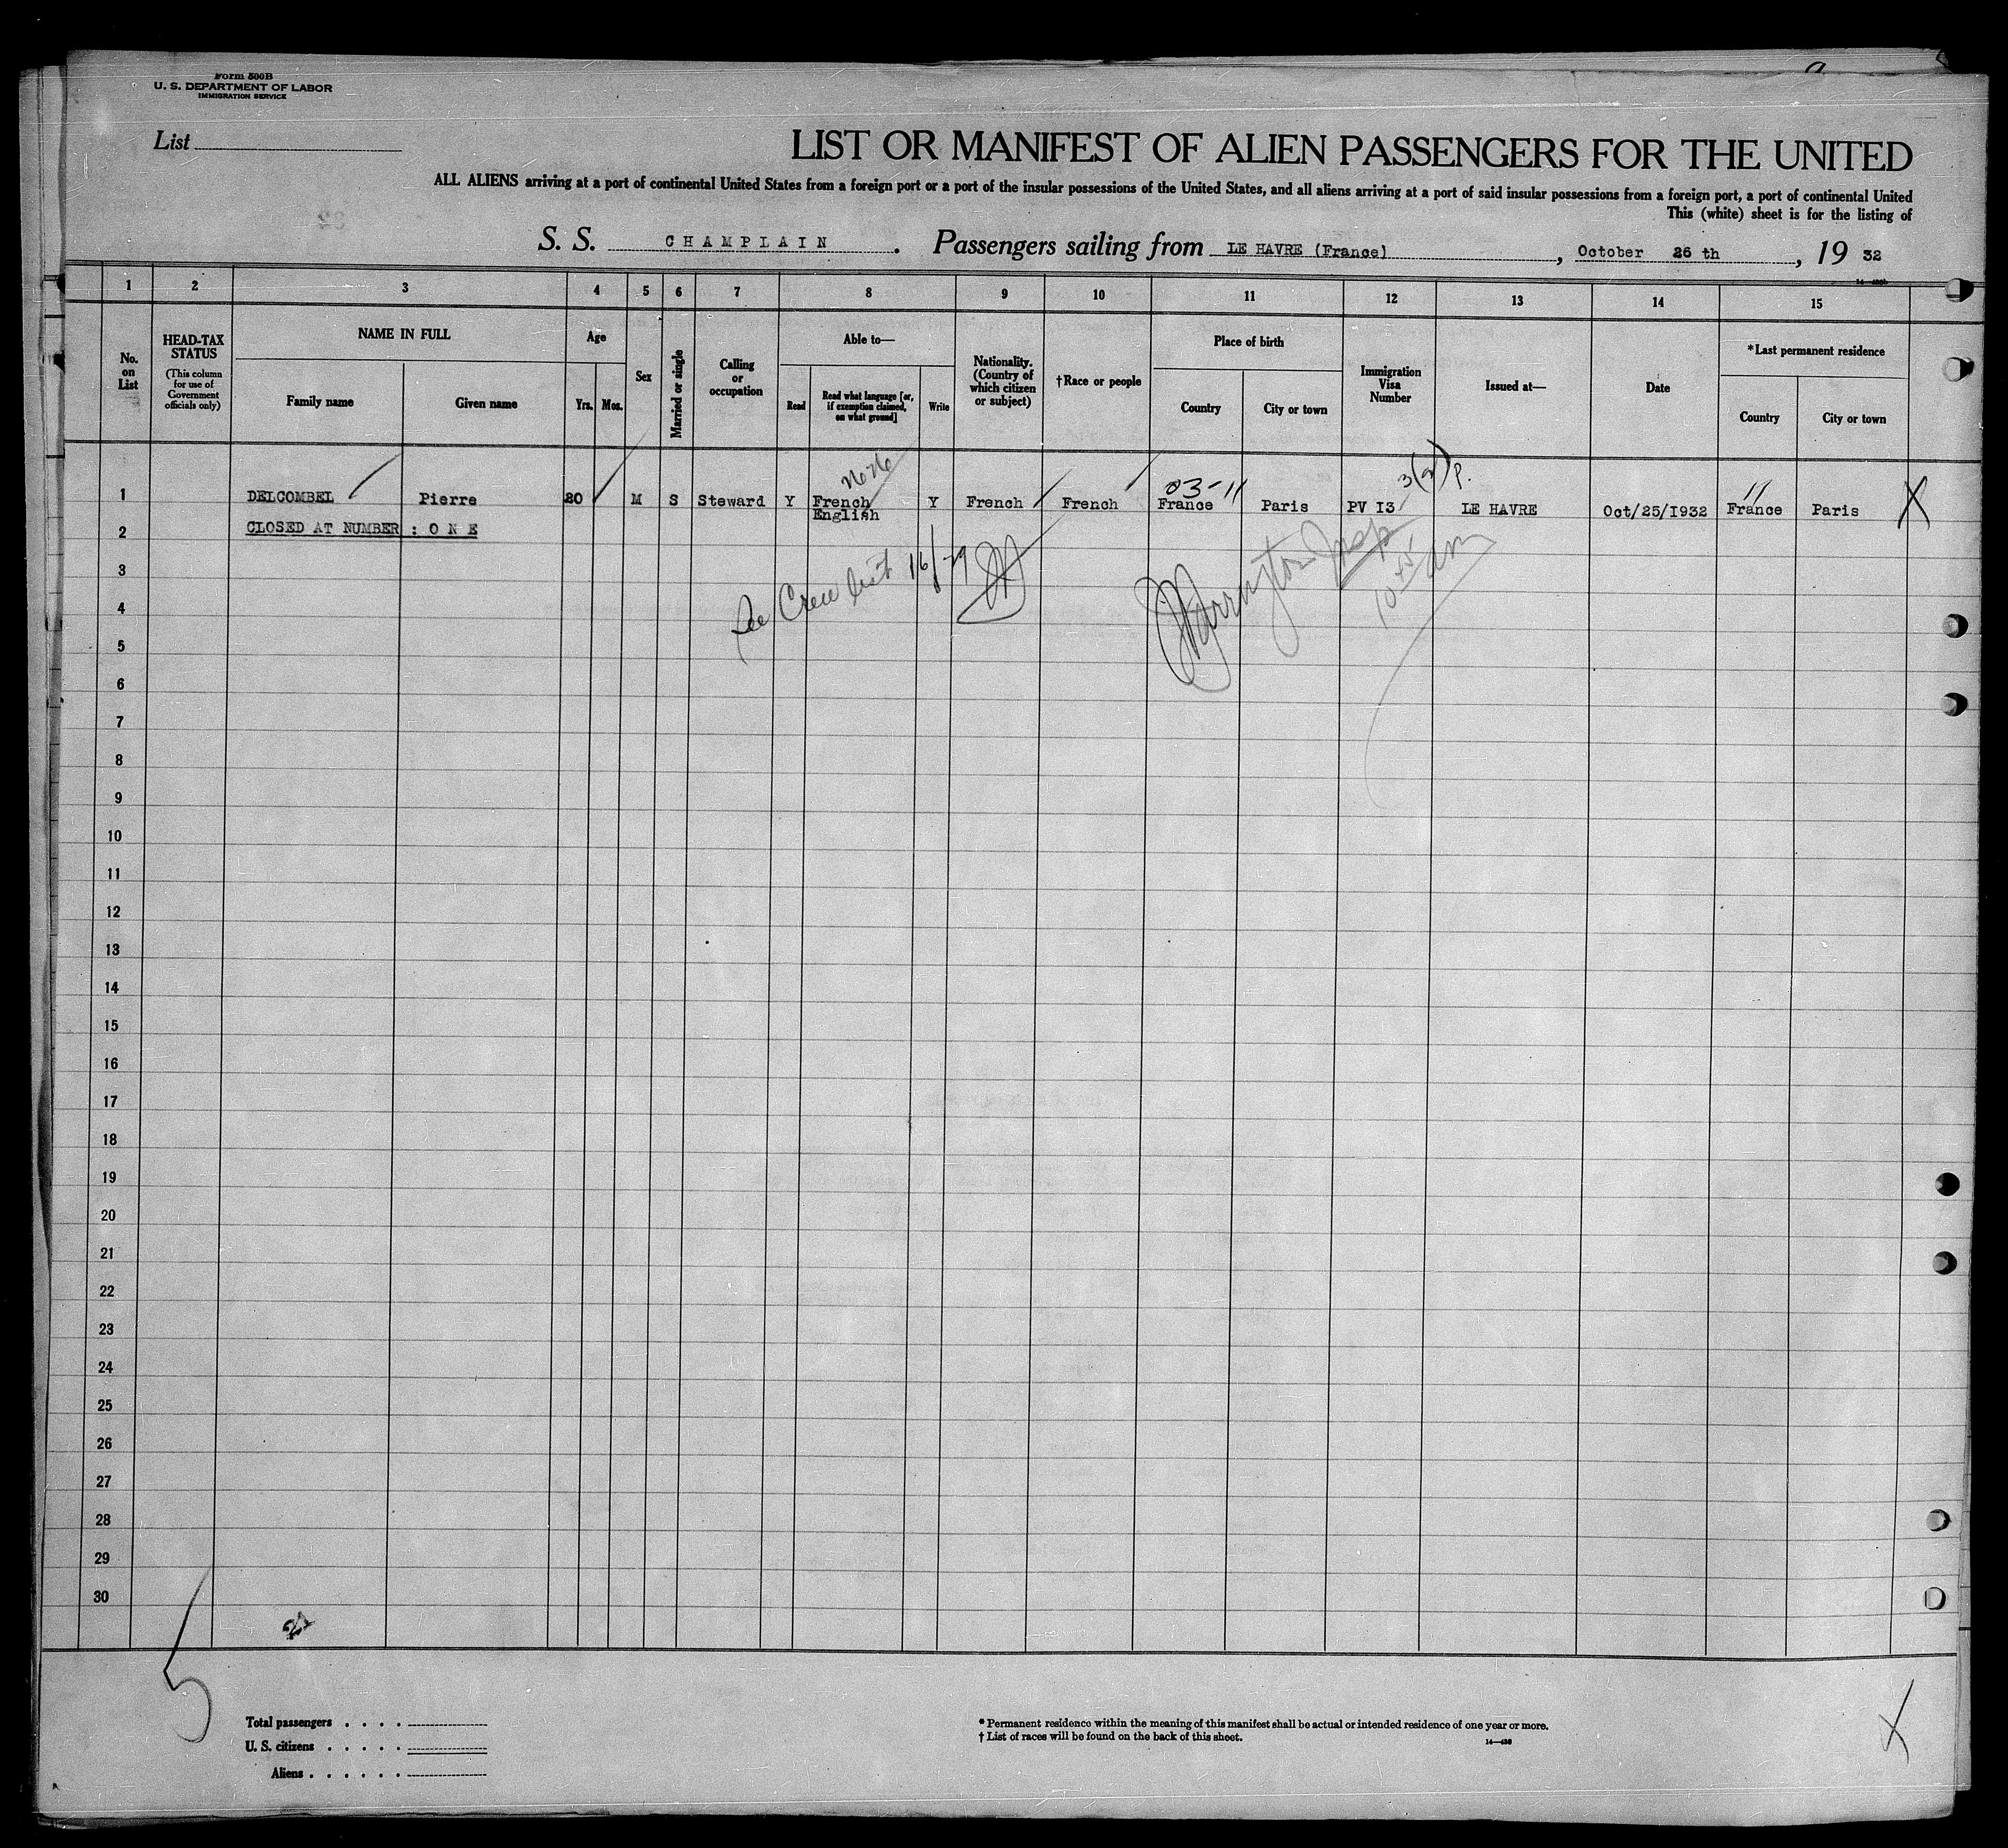 Form 500B
U. S. DEPARTMENT OF LABOR
IMMIGRATION SERVICE
List
LIST OR MANIFEST OF ALIEN PASSENGERS FOR THE UNITED
ALL ALIENS arriving at a port of continental United States from a foreign port or a port of the insular possessions of the United States, and all aliens arriving at a port of said insular possessions from a foreign port, a port of continental United
This (white) sheet is for the listing of
S. S. CHAMPLAIN. Passengers sailing from LE HAVRE (France), October 26 th, 19 32
1 2 3 4 5 6 7 8 9 10 11 12 13 14 15
No. on List
HEAD-TAX STATUS
(This column for use of Government officials only)
NAME IN FULL
Family name
Given name
Age
Yrs.
Mos.
Sex
Married or single
Calling or occupation
Able to—
Read
Read what language [or, if exemption claimed, on what ground]
Write
Nationality. (Country of which citizen or subject)
†Race or people
Place of birth
Country
City or town
Immigration Visa Number
Issued at—
Date
*Last permanent residence
Country
City or town
3(2) P.
03-11
11
1 DELCOMBEL Pierre 20 M S Steward Y French Y French French France Paris PV I3 LE HAVRE Oct/25/1932 France Paris X
English
2 CLOSED AT NUMBER : O N E
See Crew list 16/79
10 45 am
3
4
5
6
7
8
9
10
11
12
13
14
15
16
17
18
19
20
21
22
23
24
25
26
27
28
29
30
5
X
Total passengers . . . .
U. S. citizens . . . . .
Aliens . . . . . .
* Permanent residence within the meaning of this manifest shall be actual or intended residence of one year or more.
† List of races will be found on the back of this sheet.